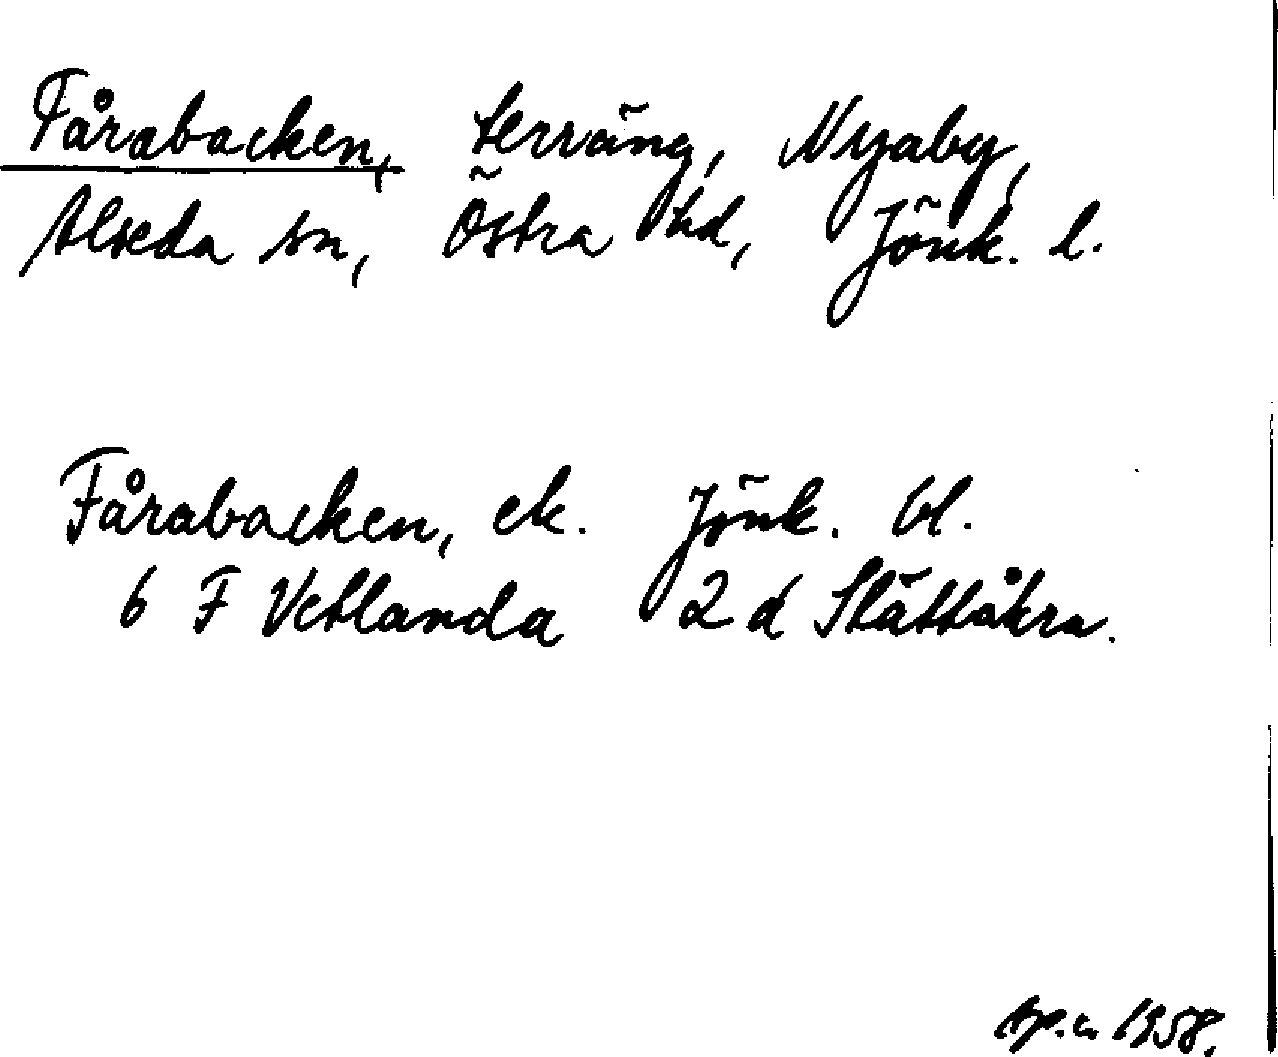 Fårabacken, terräng, Nyaby,
Alseda sn, Östra hd, Jönk. l.
Fårabacken, ek. Jönk. bl.
6 F Vetlanda 2 d Slättåkra.
1958.